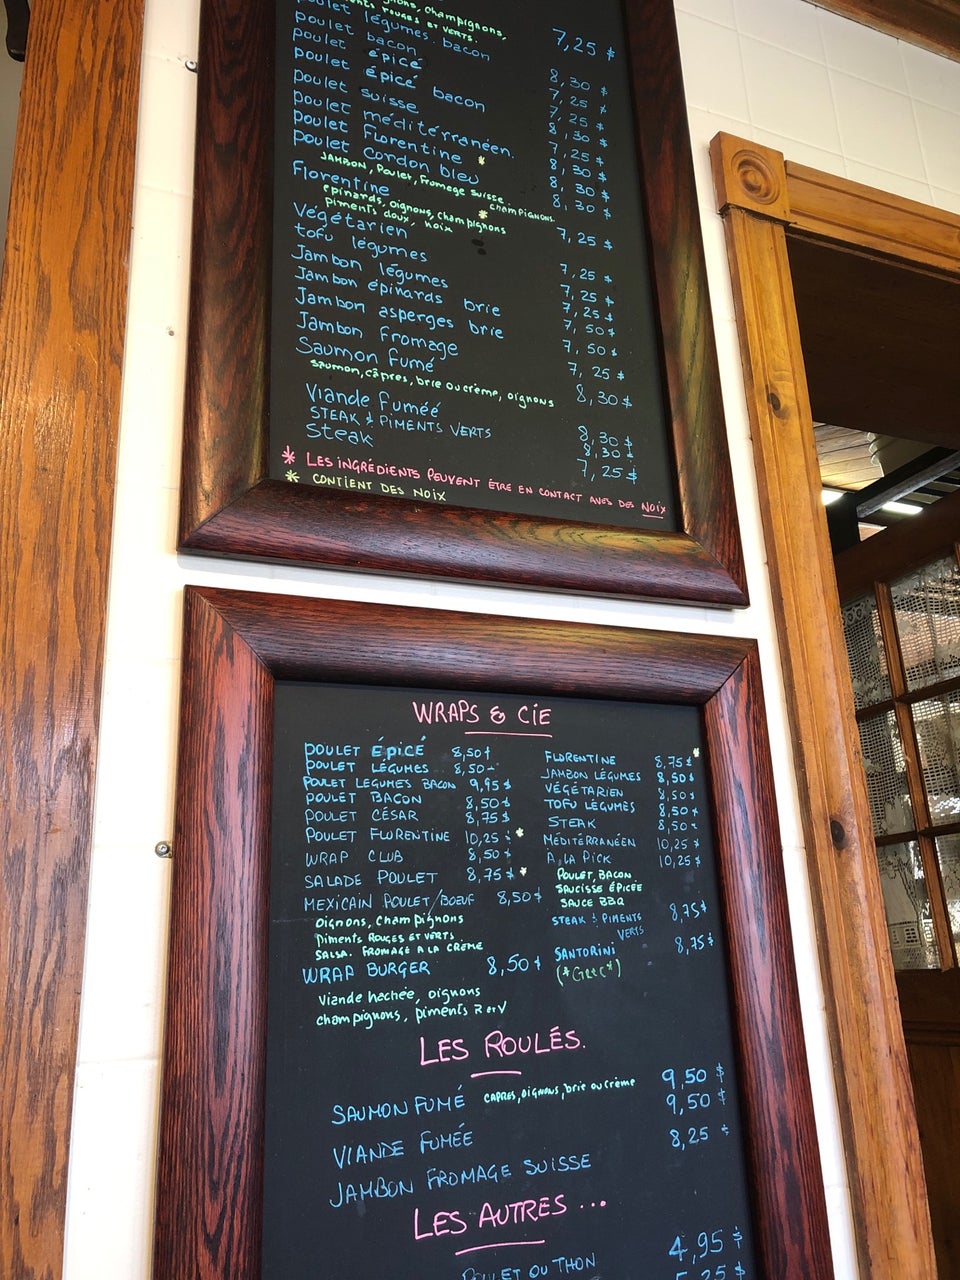 oignons, champignons,
piments rouges et verts.
poulet légumes, bacon 7,25 $
poulet bacon 8,30 $
poulet épicé 7,25 $
poulet épicé bacon 7,25 $
poulet suisse 8,30 $
poulet méditérranéen. 7,25 $
poulet Florentine * 8,30 $
poulet cordon bleu 8,30 $
JAMBON, Poulet, Fromage Suisse 8,30 $
champignons.
Florentine 7,25 $
épinards, oignons, champignons
piments doux, noix *
Végétarien 7,25 $
tofu légumes 7,25 $
Jambon légumes 7,25 $
Jambon épinards brie 7,50 $
Jambon asperges brie 7,50 $
Jambon Fromage 7,25 $
Saumon Fumé 8,30 $
Saumon, câpres, brie ou crème, oignons
Viande Fumée 8,30 $
STEAK & PIMENTS VERTS 8,30 $
Steak 7,25 $
* LES INGRÉDIENTS PEUVENT ÊTRE EN CONTACT AVES DES NOIX
* CONTIENT DES NOIX
WRAPS & CIE
POULET ÉPICÉ 8,50 $
POULET LÉGUMES 8,50
POULET LEGUMES BACON 9,95 $
POULET BACON 8,50 $
POULET CÉSAR 8,75 $
POULET FLORENTINE 10,25 $ *
WRAP CLUB 8,50 $
SALADE POULET 8,75 $ *
MEXICAIN POULET/BOEUF 8,50 $
oignons, champignons
Piments ROUGES ET VERTS
SALSA. FROMAGE A LA CRÈME
WRAP BURGER 8,50 $
Viande hachée, oignons
champignons, piments R et V
FLORENTINE 8,75 $ *
JAMBON LÉGUMES 8,50 $
VÉGÉTARIEN 8,50 $
TOFU LÉGUMES 8,50 $
STEAK 8,50 $
MÉDITÉRRANÉEN 10,25 $
A LA PICK 10,25 $
POULET, BACON
SAUCISSE ÉPICÉE
SAUCE BBQ
STEAK & PIMENTS 8,75 $
VERTS
SANTORINI 8,75 $
(*Grec*)
LES ROULÉS.
SAUMON FUMÉ CAPRES, oignons, brie ou crème 9,50 $
VIANDE FUMÉE 9,50 $
JAMBON FROMAGE SUISSE 8,25 $
LES AUTRES ...
POULET OU THON 4,95 $
5,25 $